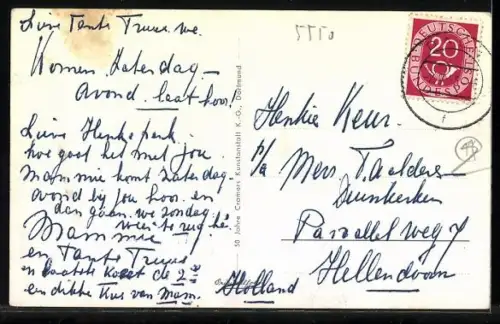 Lieve Tante Truus. we.
Komen Zaterdag -
Avond. laat hoor!
Lieve Henkepenk.
hoe gaat het met jou
Mammie komt zaterdag
avond bij jou hoor. en
dan gaan. we zondag
weer terug hé
Mammie
en Tante Truus
en laatste Komt de 2e
een dikke Kus van Mam.
50 Jahre Cramers Kunstanstalt K.-G., Dortmund
5550
DEUTSCHE BUNDESPOST
20
Henkie Keur.
p/a Mevr. T.
Duinkerken
Parallelweg 7
Hellendoorn
Holland